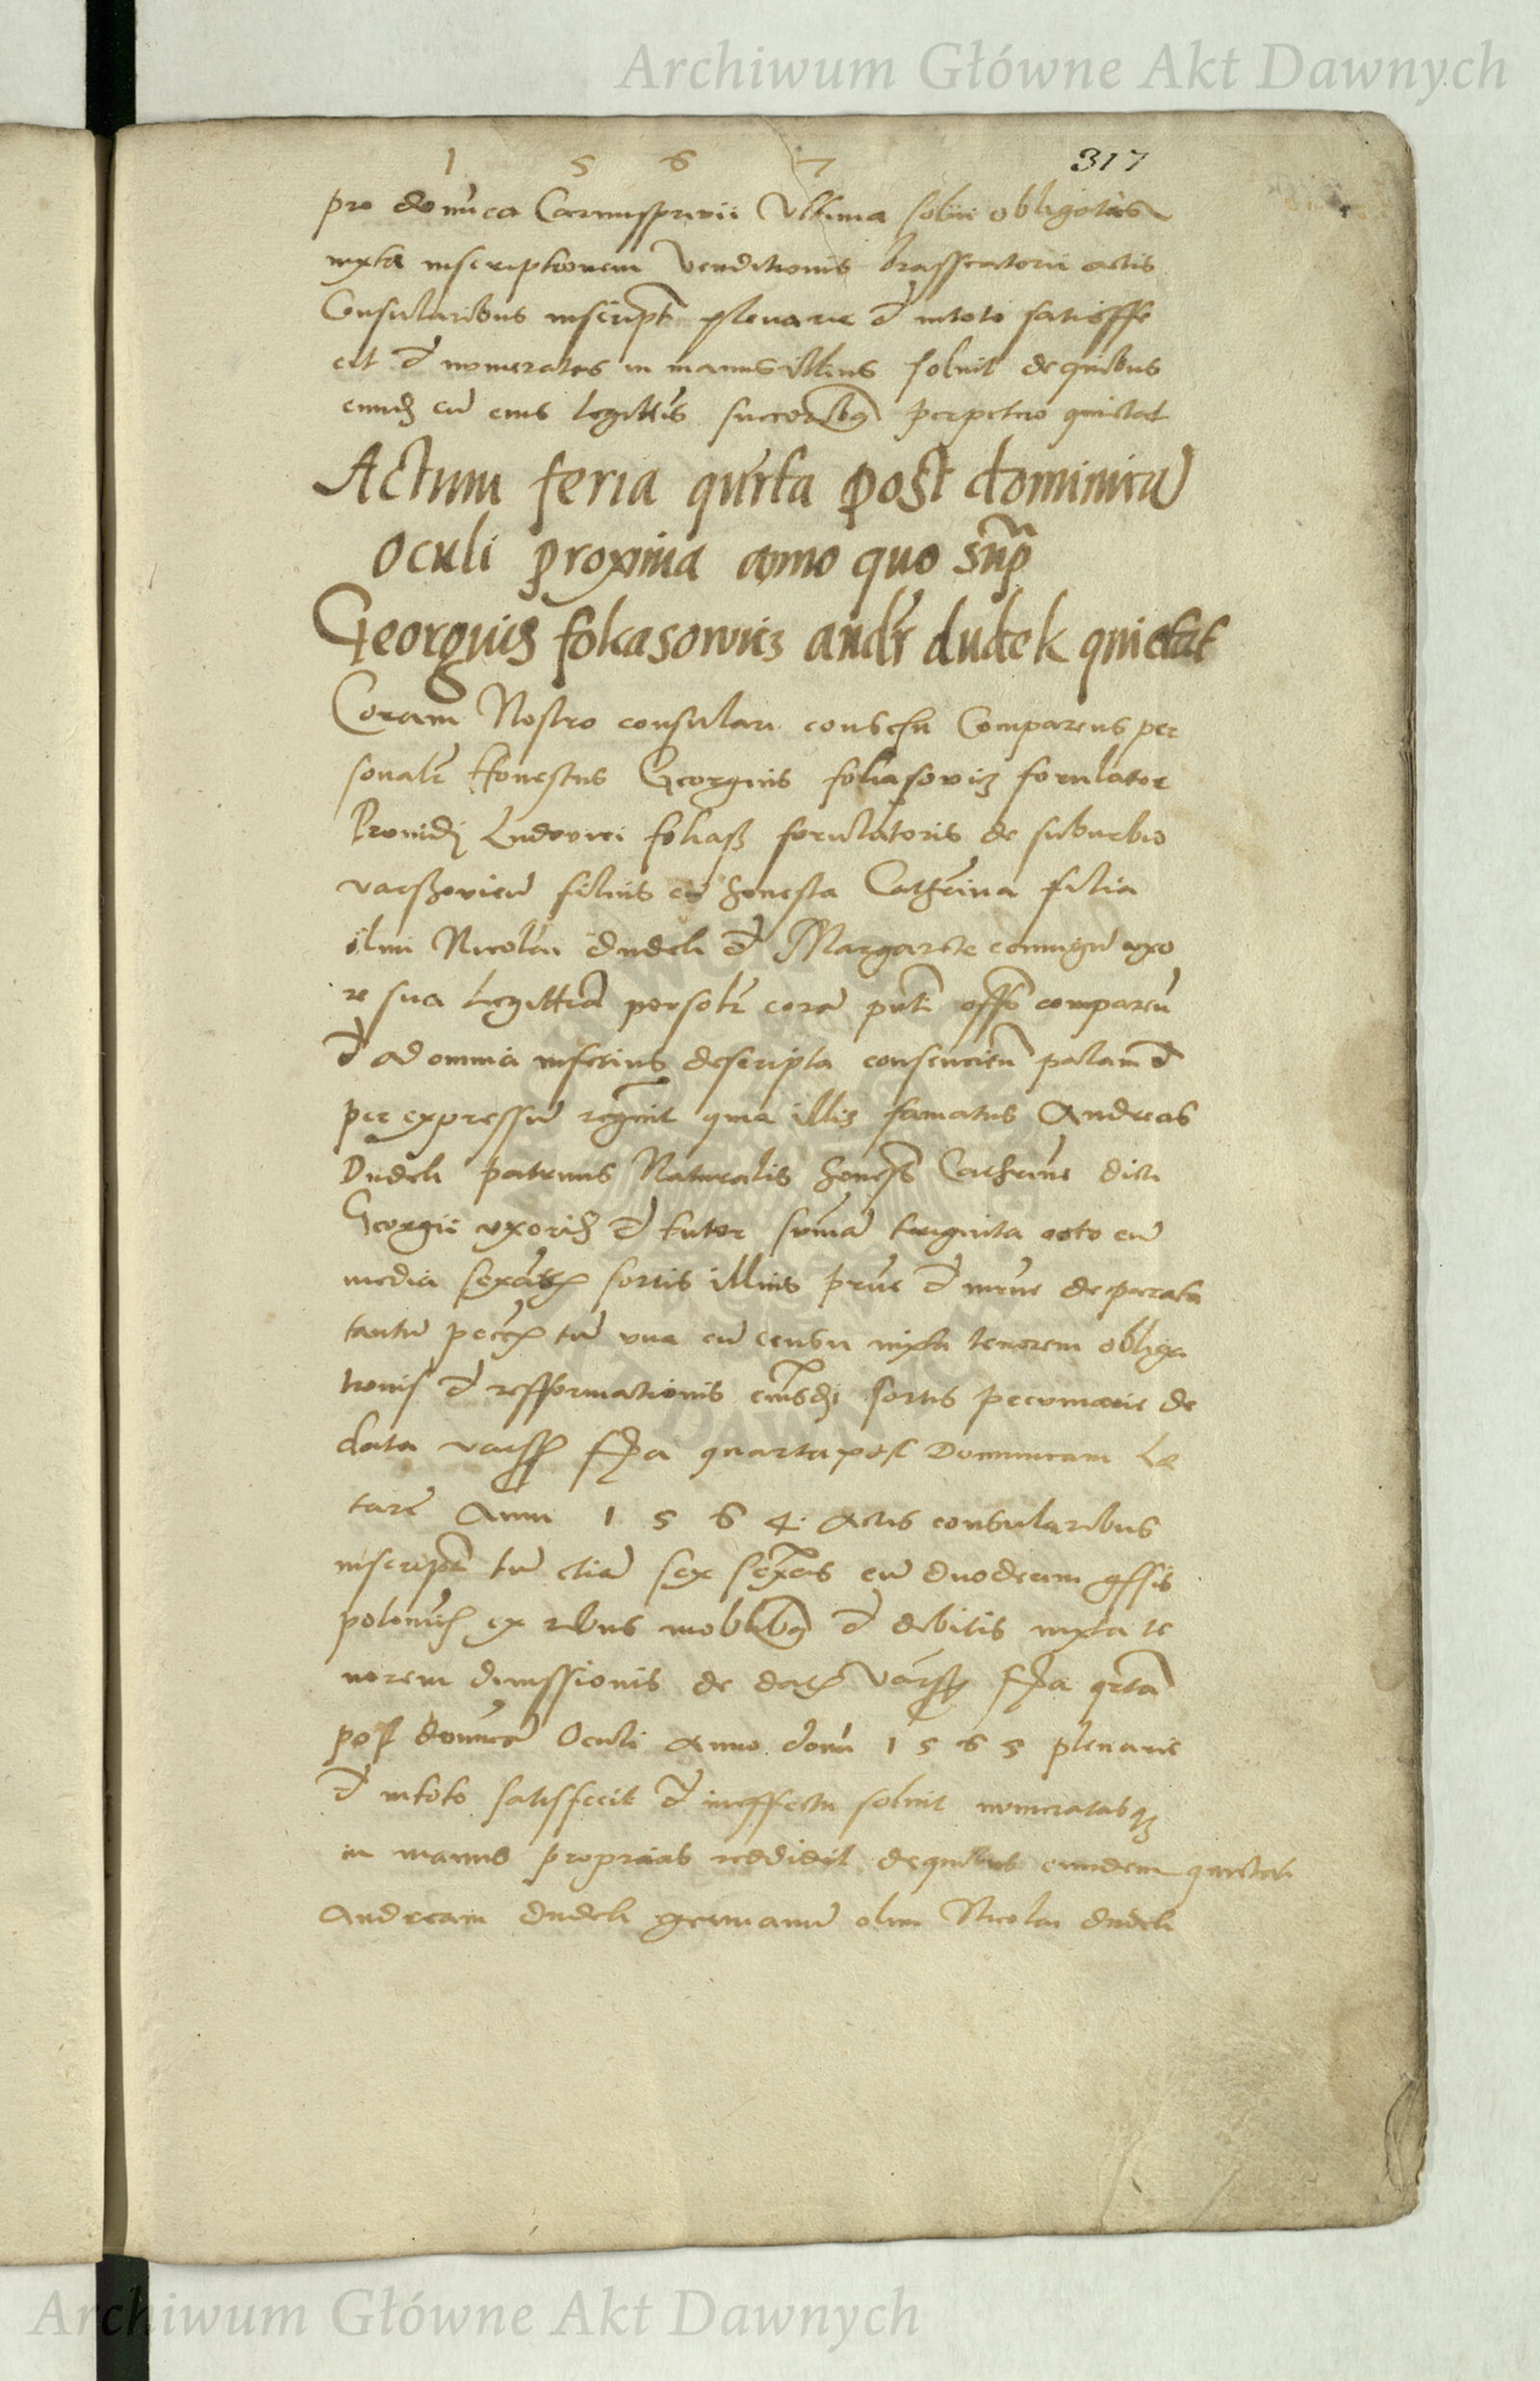 Archiwum Główne Akt Dawnych
1 5 6 7 317
pro domica Carnisprivii Ultima solvi obligatus
iuxta inscriptionem Venditionis brasseatorii actis
Consularibus inscript plenarie et in toto satisffe
cit et numeratos in manus illius solvit de quibus
eund cu eius legittis successoribq perpetuo quietat
Actum feria qurta post dominica
Oculi proxima anno quo sup
Georgius fokasowicz andr dudek quietat
Coram Nostro consulari consessu Comparens per
sonalr Honestus Georgius fokasovicz forulator
Providi Ludovici fokass forulatoris de suburbio
varschovien filius cu honesta Catherina filia
olim Nicolai dudek et Margarete coniugu uxo
re sua legittia personlr cora pnti offo comparen
et ad omnia inferius descripta consencien palam et
per expressu recognit quia illis famatus Andreas
Dudek patruus Naturalis honeste Catherine dicti
Georgii uxoris et tutor summa triginta octo cu
media sexag sortis illius prne et mrne deparata
tantu pecc tu una cu censu iuxta tenorem obliga
tionis et refformationis eiusdi sortis pecuniarie de
data varss fra quarta post Dominicam Le
tare Anni 1 5 6 4. Actis consularibus
inscript tu etia sex sexas cu duodecim gssis
polonic ex rebus mobilibq et debitis iuxta te
norem dimissionis de dat Varss fra qrta
post domica Oculi Anno domi 1 5 6 5 plenarie
et in toto satisfecit et in effectu solvit numeratasq
in manus proprias reddidit de quibus eundem quietat
Andream dudek germanu olim Nicolai dudek
Archiwum Główne Akt Dawnych